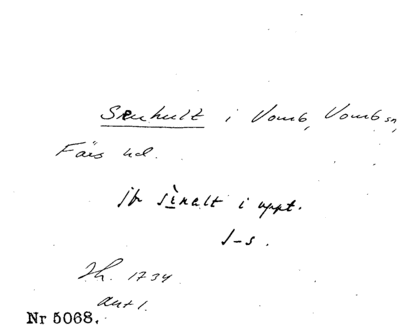 Senhult i Vomb, Vomb sn,
Färs hd.
jfr sènalt i uppt.
J-s.
Jh. 1734
ant 1.
Nr 5068.